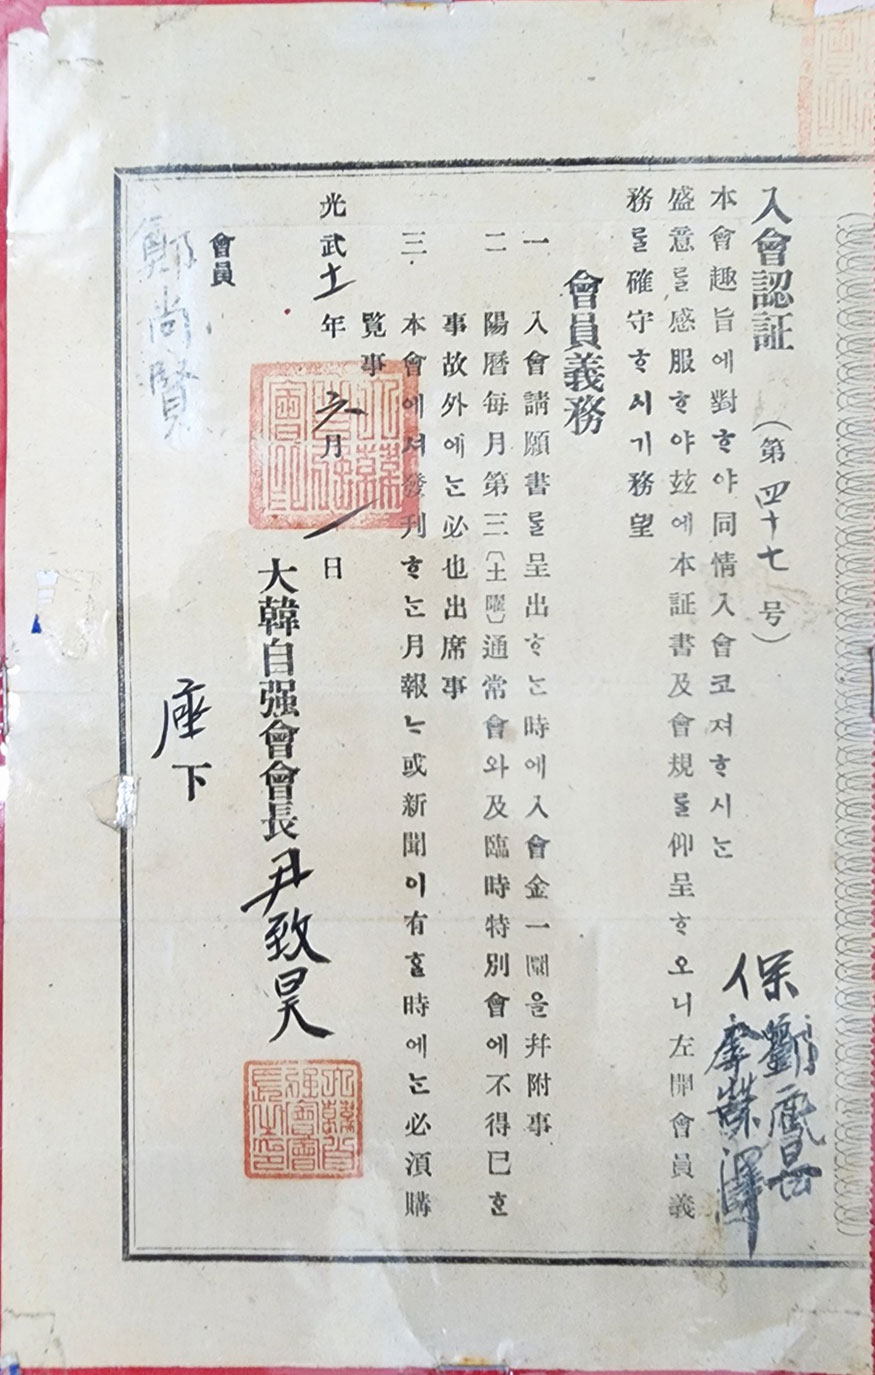 入會認証 (第四十七号)
本會趣旨에對ᄒᆞ야同情入會코져ᄒᆞ시ᄂᆞᆫ
盛意ᄅᆞᆯ感服ᄒᆞ야玆에本証書及會規ᄅᆞᆯ仰呈ᄒᆞ오니左開會員義
務ᄅᆞᆯ確守ᄒᆞ시기務望
保
會員義務
一 入會請願書ᄅᆞᆯ呈出ᄒᆞᄂᆞᆫ時에入會金一圜을幷附事
二 陽曆每月第三(土曜)通常會와及臨時特別會에不得已ᄒᆞᆫ
事故外에ᄂᆞᆫ必也出席事
三 本會에셔發刊ᄒᆞᄂᆞᆫ月報ᄂᆞᆫ或新聞이有ᄒᆞᆯ時에ᄂᆞᆫ必須購
覧事
光武十一年六月一日
大韓自强會會長尹致昊
會員
鄭尚賢
座下